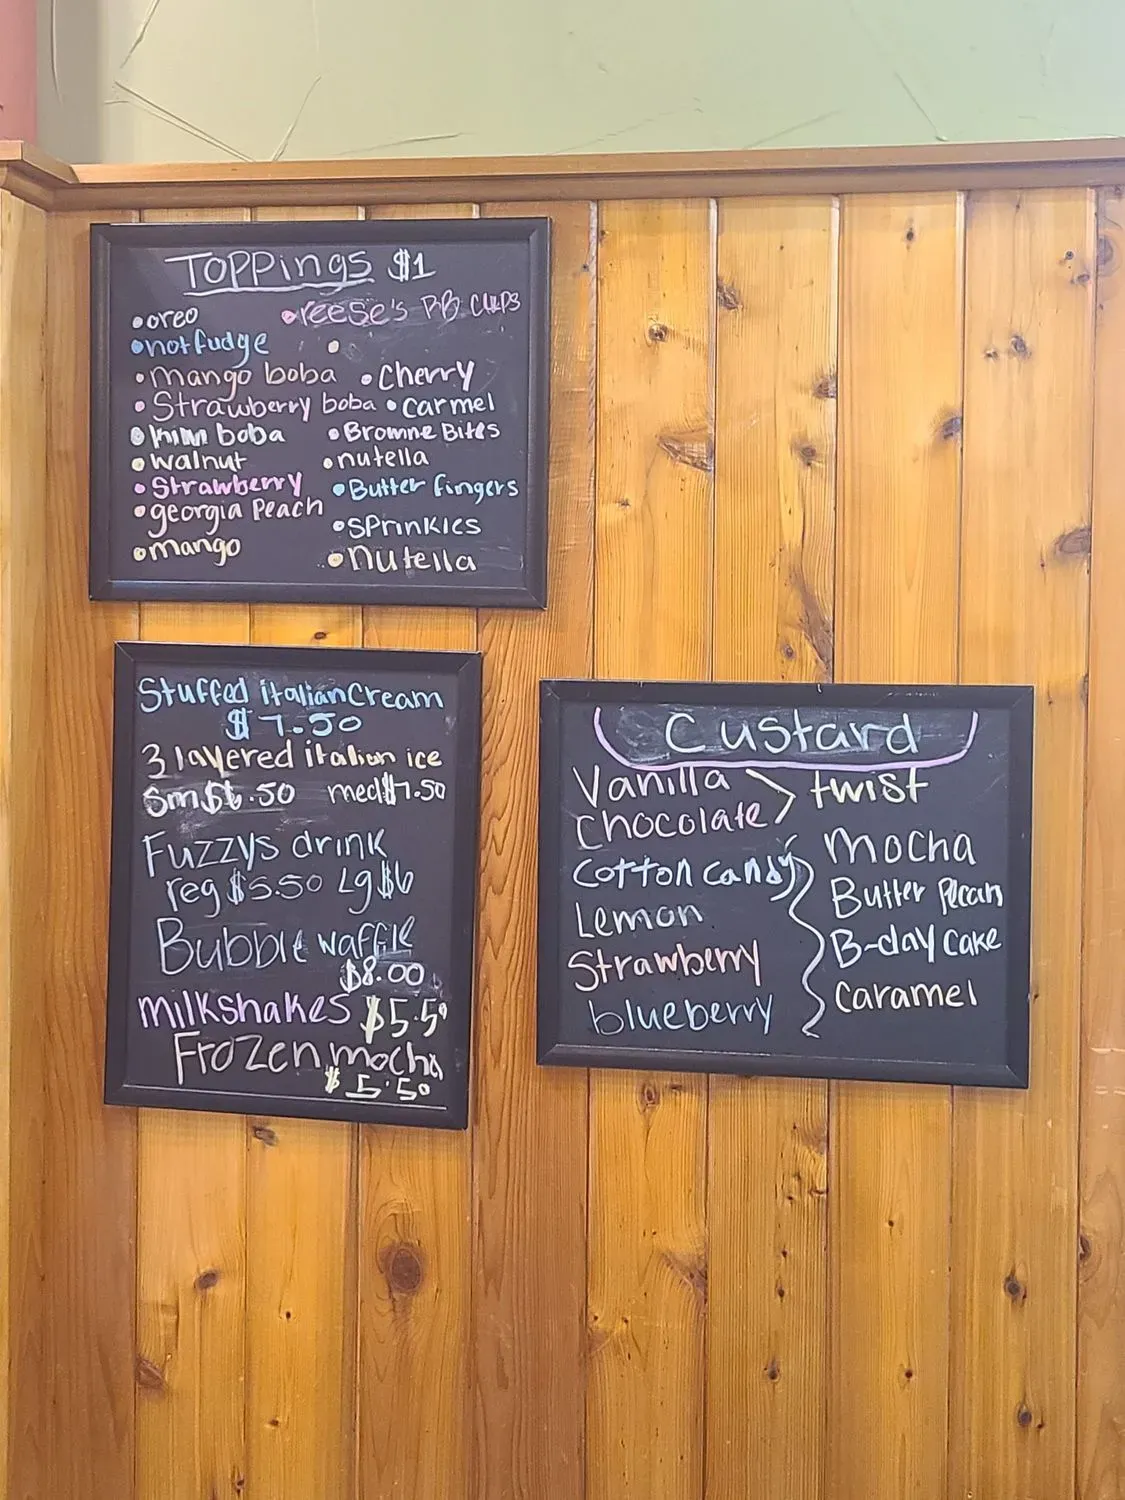 Toppings $1
•oreo
•reese's PB cups
•hotfudge
•mango boba
•Cherry
•Strawberry boba
•carmel
•kiwi boba
•Browne Bites
•walnut
•nutella
•Strawberry
•Butter fingers
•georgia Peach
•SPrinkles
•mango
•nutella
Stuffed italian Cream
$7.50
3 layered italian ice
Sm $6.50 med $7.50
Fuzzys drink
reg $5.50 Lg $6
Bubble waffle
$8.00
milkshakes $5.50
Frozen mocha
$5.50
Custard
Vanilla
Chocolate
twist
Cotton candy
Lemon
Strawberry
blueberry
Mocha
Butter Pecan
B-day Cake
Caramel